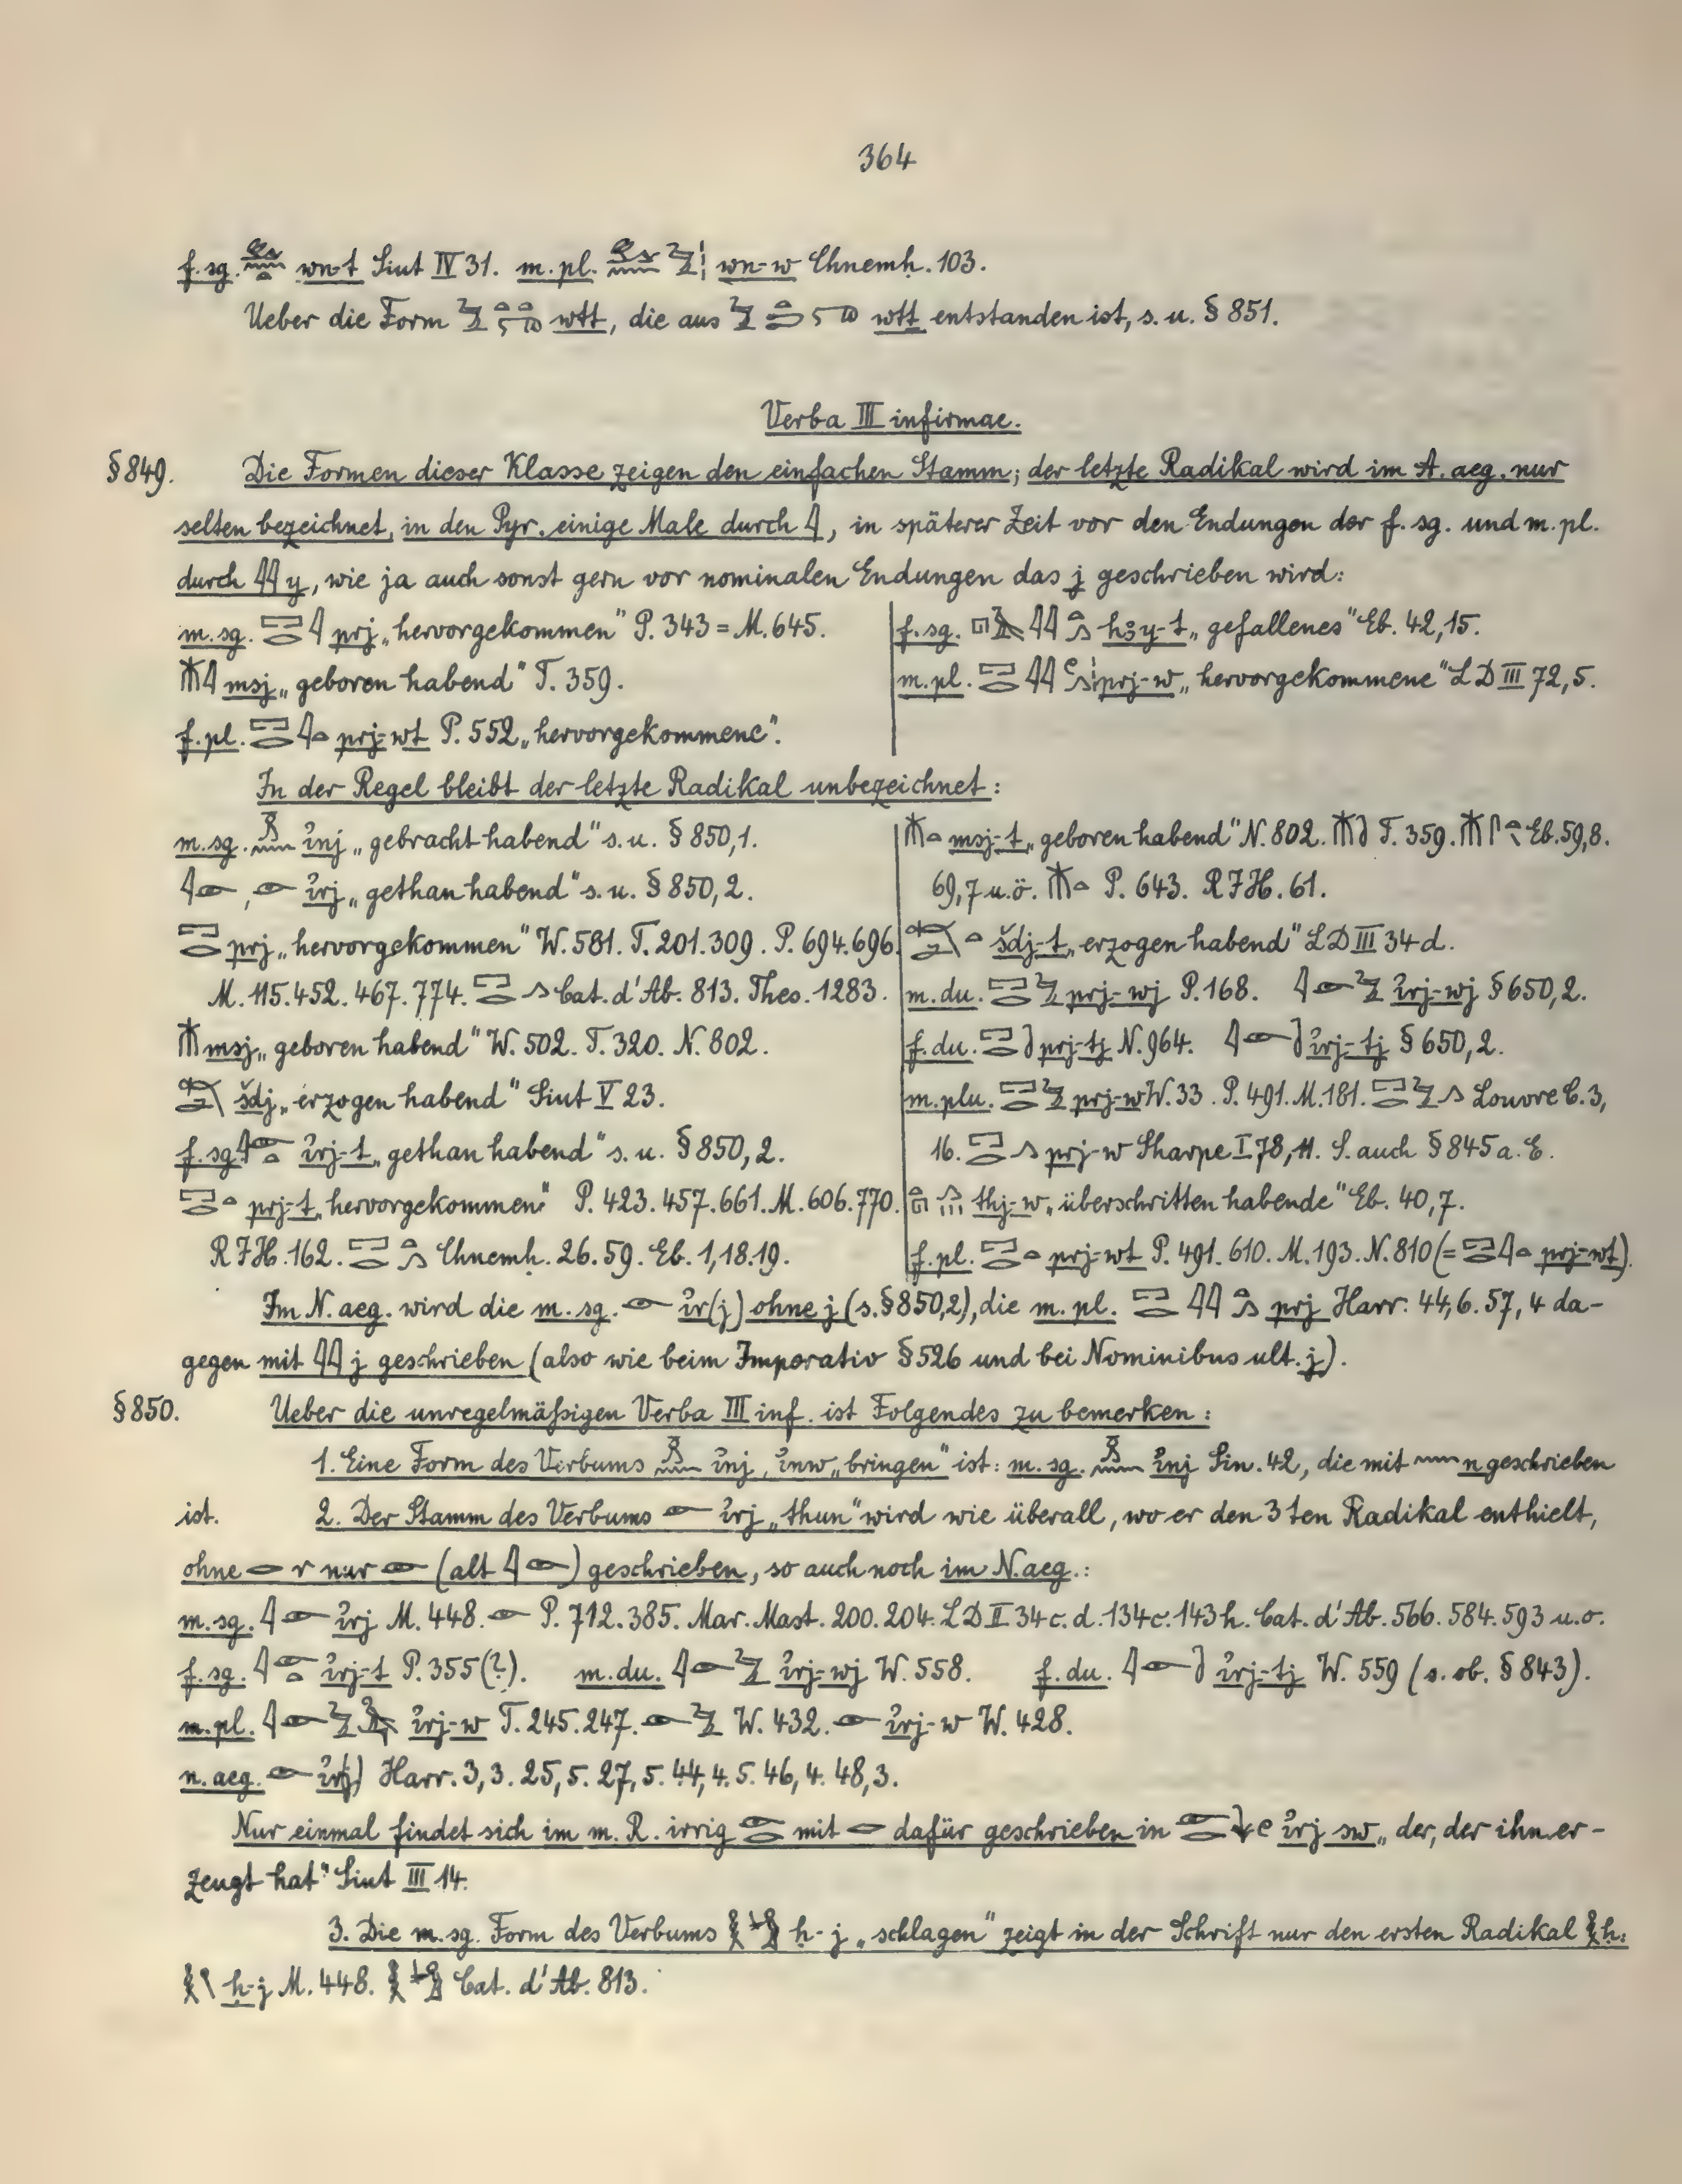 364
f. sg. 𓃹𓈖𓏏 wn-t Siut IV 31. m. pl. 𓃹𓈖𓅱𓏪 wn-w Chnemḥ. 103.
Ueber die Form wtt, die aus wṯt entstanden ist, s. u. § 851.
Verba III infirmae.
§ 849. Die Formen dieser Klasse zeigen den einfachen Stamm; der letzte Radikal wird im A. aeg. nur
selten bezeichnet, in den Pyr. einige Male durch 𓇋, in späterer Zeit vor den Endungen der f. sg. und m. pl.
durch 𓇋𓇋 y, wie ja auch sonst gern vor nominalen Endungen das j geschrieben wird:
m. sg. 𓉐𓂋𓇋 prj „hervorgekommen" P. 343 = M. 645.
𓄟𓇋 msj „geboren habend" T. 359.
f. pl. 𓉐𓂋𓇋𓏏 prj-wt P. 552 „hervorgekommene".
f. sg. 𓉔𓄿𓇋𓇋𓏏𓂻 hꜣy-t „gefallenes" Eb. 42,15.
m. pl. 𓉐𓂋𓇋𓇋𓏲𓂻𓏪 prj-w „hervorgekommene" LD III 72,5.
In der Regel bleibt der letzte Radikal unbezeichnet:
m. sg. 𓏎𓈖 ỉnj „gebracht habend" s. u. § 850,1.
𓇋𓁹, 𓁹 ỉrj „gethan habend" s. u. § 850,2.
𓉐𓂋 prj „hervorgekommen" W. 581. T. 201. 309. P. 694. 696.
M. 115. 452. 467. 774. 𓉐𓂋𓂻 Cat. d'Ab. 813. Thes. 1283.
𓄟 msj „geboren habend" W. 502. T. 320. N. 802.
šdj „erzogen habend" Siut V 23.
f. sg. 𓇋𓁹𓏏 ỉrj-t „gethan habend" s. u. § 850,2.
𓉐𓂋𓏏 prj-t „hervorgekommen" P. 423. 457. 661. M. 606. 770.
RJH. 162. 𓉐𓂋𓏏𓂻 Chnemḥ. 26. 59. Eb. 1,18.19.
𓄟𓏏 msj-t „geboren habend" N. 802. T. 359. Eb. 59,8.
69,7 u. ö. 𓄟𓏏 P. 643. RJH. 61.
šdj-t „erzogen habend" LD III 34d.
m. du. 𓉐𓂋𓅱 prj-wj P. 168. 𓇋𓁹𓅱 ỉrj-wj § 650,2.
f. du. 𓉐𓂋 prj-tj N. 964. 𓇋𓁹 ỉrj-tj § 650,2.
m. plu. 𓉐𓂋𓅱 prj-w W. 33. P. 491. M. 181. 𓉐𓂋𓅱𓂻 Louvre C. 3,
16. 𓉐𓂋𓂻 prj-w Sharpe I 78,11. S. auch § 845 a. E.
𓏏𓉔𓂻𓏪 thj-w „überschritten habende" Eb. 40,7.
f. pl. 𓉐𓂋𓏏 prj-wt P. 491. 610. M. 193. N. 810 (= 𓉐𓂋𓇋𓏏 prj-wt).
Im N. aeg. wird die m. sg. 𓁹 ỉr(j) ohne j (s. § 850,2), die m. pl. 𓉐𓂋𓇋𓇋𓏏𓂻 prj Harr. 44,6. 57,4 da-
gegen mit 𓇋𓇋 j geschrieben (also wie beim Imperativ § 526 und bei Nominibus ult. j).
§ 850. Ueber die unregelmäßigen Verba III inf. ist Folgendes zu bemerken:
1. Eine Form des Verbums 𓏎𓈖 ỉnj, ỉnw „bringen" ist: m. sg. 𓏎𓈖 ỉnj Sin. 42, die mit 𓈖 n geschrieben
ist. 2. Der Stamm des Verbums 𓁹 ỉrj „thun" wird wie überall, wo er den 3ten Radikal enthielt,
ohne 𓂋 r nur 𓁹 (alt 𓇋𓁹) geschrieben, so auch noch im N. aeg.:
m. sg. 𓇋𓁹 ỉrj M. 448. 𓁹 P. 712. 385. Mar. Mast. 200. 204. LD II 34 c. d. 134 c. 143 h. Cat. d'Ab. 566. 584. 593 u. o.
f. sg. 𓇋𓁹𓏏 ỉrj-t P. 355 (?). m. du. 𓇋𓁹𓅱 ỉrj-wj W. 558. f. du. 𓇋𓁹 ỉrj-tj W. 559 (s. ob. § 843).
m. pl. 𓇋𓁹𓅱 ỉrj-w T. 245. 247. 𓁹𓅱 W. 432. 𓁹 ỉrj-w W. 428.
n. aeg. 𓁹 ỉr(j) Harr. 3,3. 25,5. 27,5. 44,4.5. 46,4. 48,3.
Nur einmal findet sich im m. R. irrig 𓁹𓂋 mit 𓂋 dafür geschrieben in 𓁹𓂋𓇓𓏲 ỉrj sw „der, der ihn er-
zeugt hat" Siut III 14.
3. Die m. sg. Form des Verbums ḥ-j „schlagen" zeigt in der Schrift nur den ersten Radikal 𓎛 ḥ:
ḥ-j M. 448. Cat. d'Ab. 813.